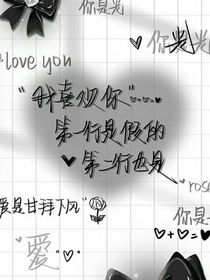 你是光
光光
love you
"我喜欢你"
第一行是假的
第二行也是
rose
爱是甘拜下风"
你是
愛